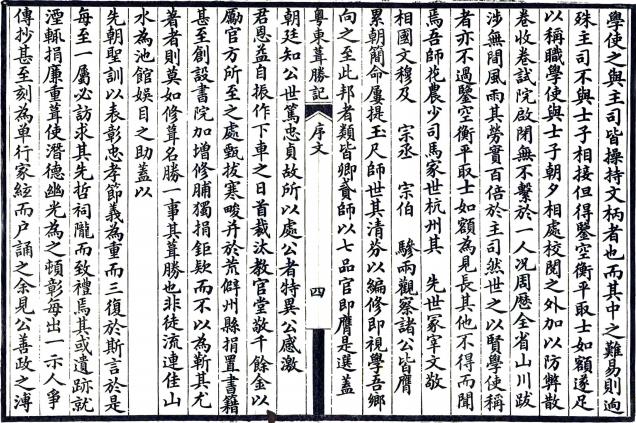 學使之與主司皆操持文柄者也而其中之難易則迥
殊主司不與士子相接但得鑒空衡平取士如額遂足
以稱職學使與士子朝夕相處校閱之外加以防弊散
卷收卷試院啟閉無不繫於一人況周歷全省山川跋
涉無間風雨其勞實百倍於主司然世之以賢學使稱
者亦不過鑒空衡平取士如額為見長其他不得而聞
焉吾師花農少司馬家世杭州其 先世冢宰文敬
相國文穆及 宗丞 宗伯 驂雨觀察諸公皆膺
累朝簡命屢提玉尺師世其清芬以編修即視學吾鄉
向之至此邦者類皆卿貳師以七品官即膺是選蓋
粵東葺勝記
序文
四
朝廷知公世篤忠貞故所以處公者特異公感激
君恩益自振作下車之日首裁汰教官堂敬千餘金以
勵官方所至之處甄拔寒畯并於荒僻州縣捐置書籍
甚至創設書院加增修脯獨捐鉅欵而不以為靳其尤
著者則莫如修葺名勝一事其葺勝也非徒流連佳山
水為池館娛目之助蓋以
先朝聖訓以表彰忠孝節義為重而三復於斯言於是
每至一屬必訪求其先哲祠隴而致禮焉其或遺跡就
湮輒捐廉重葺使潛德幽光為之頓彰每出一示人爭
傳抄甚至刻為單行家絃而户誦之余見公善政之溥